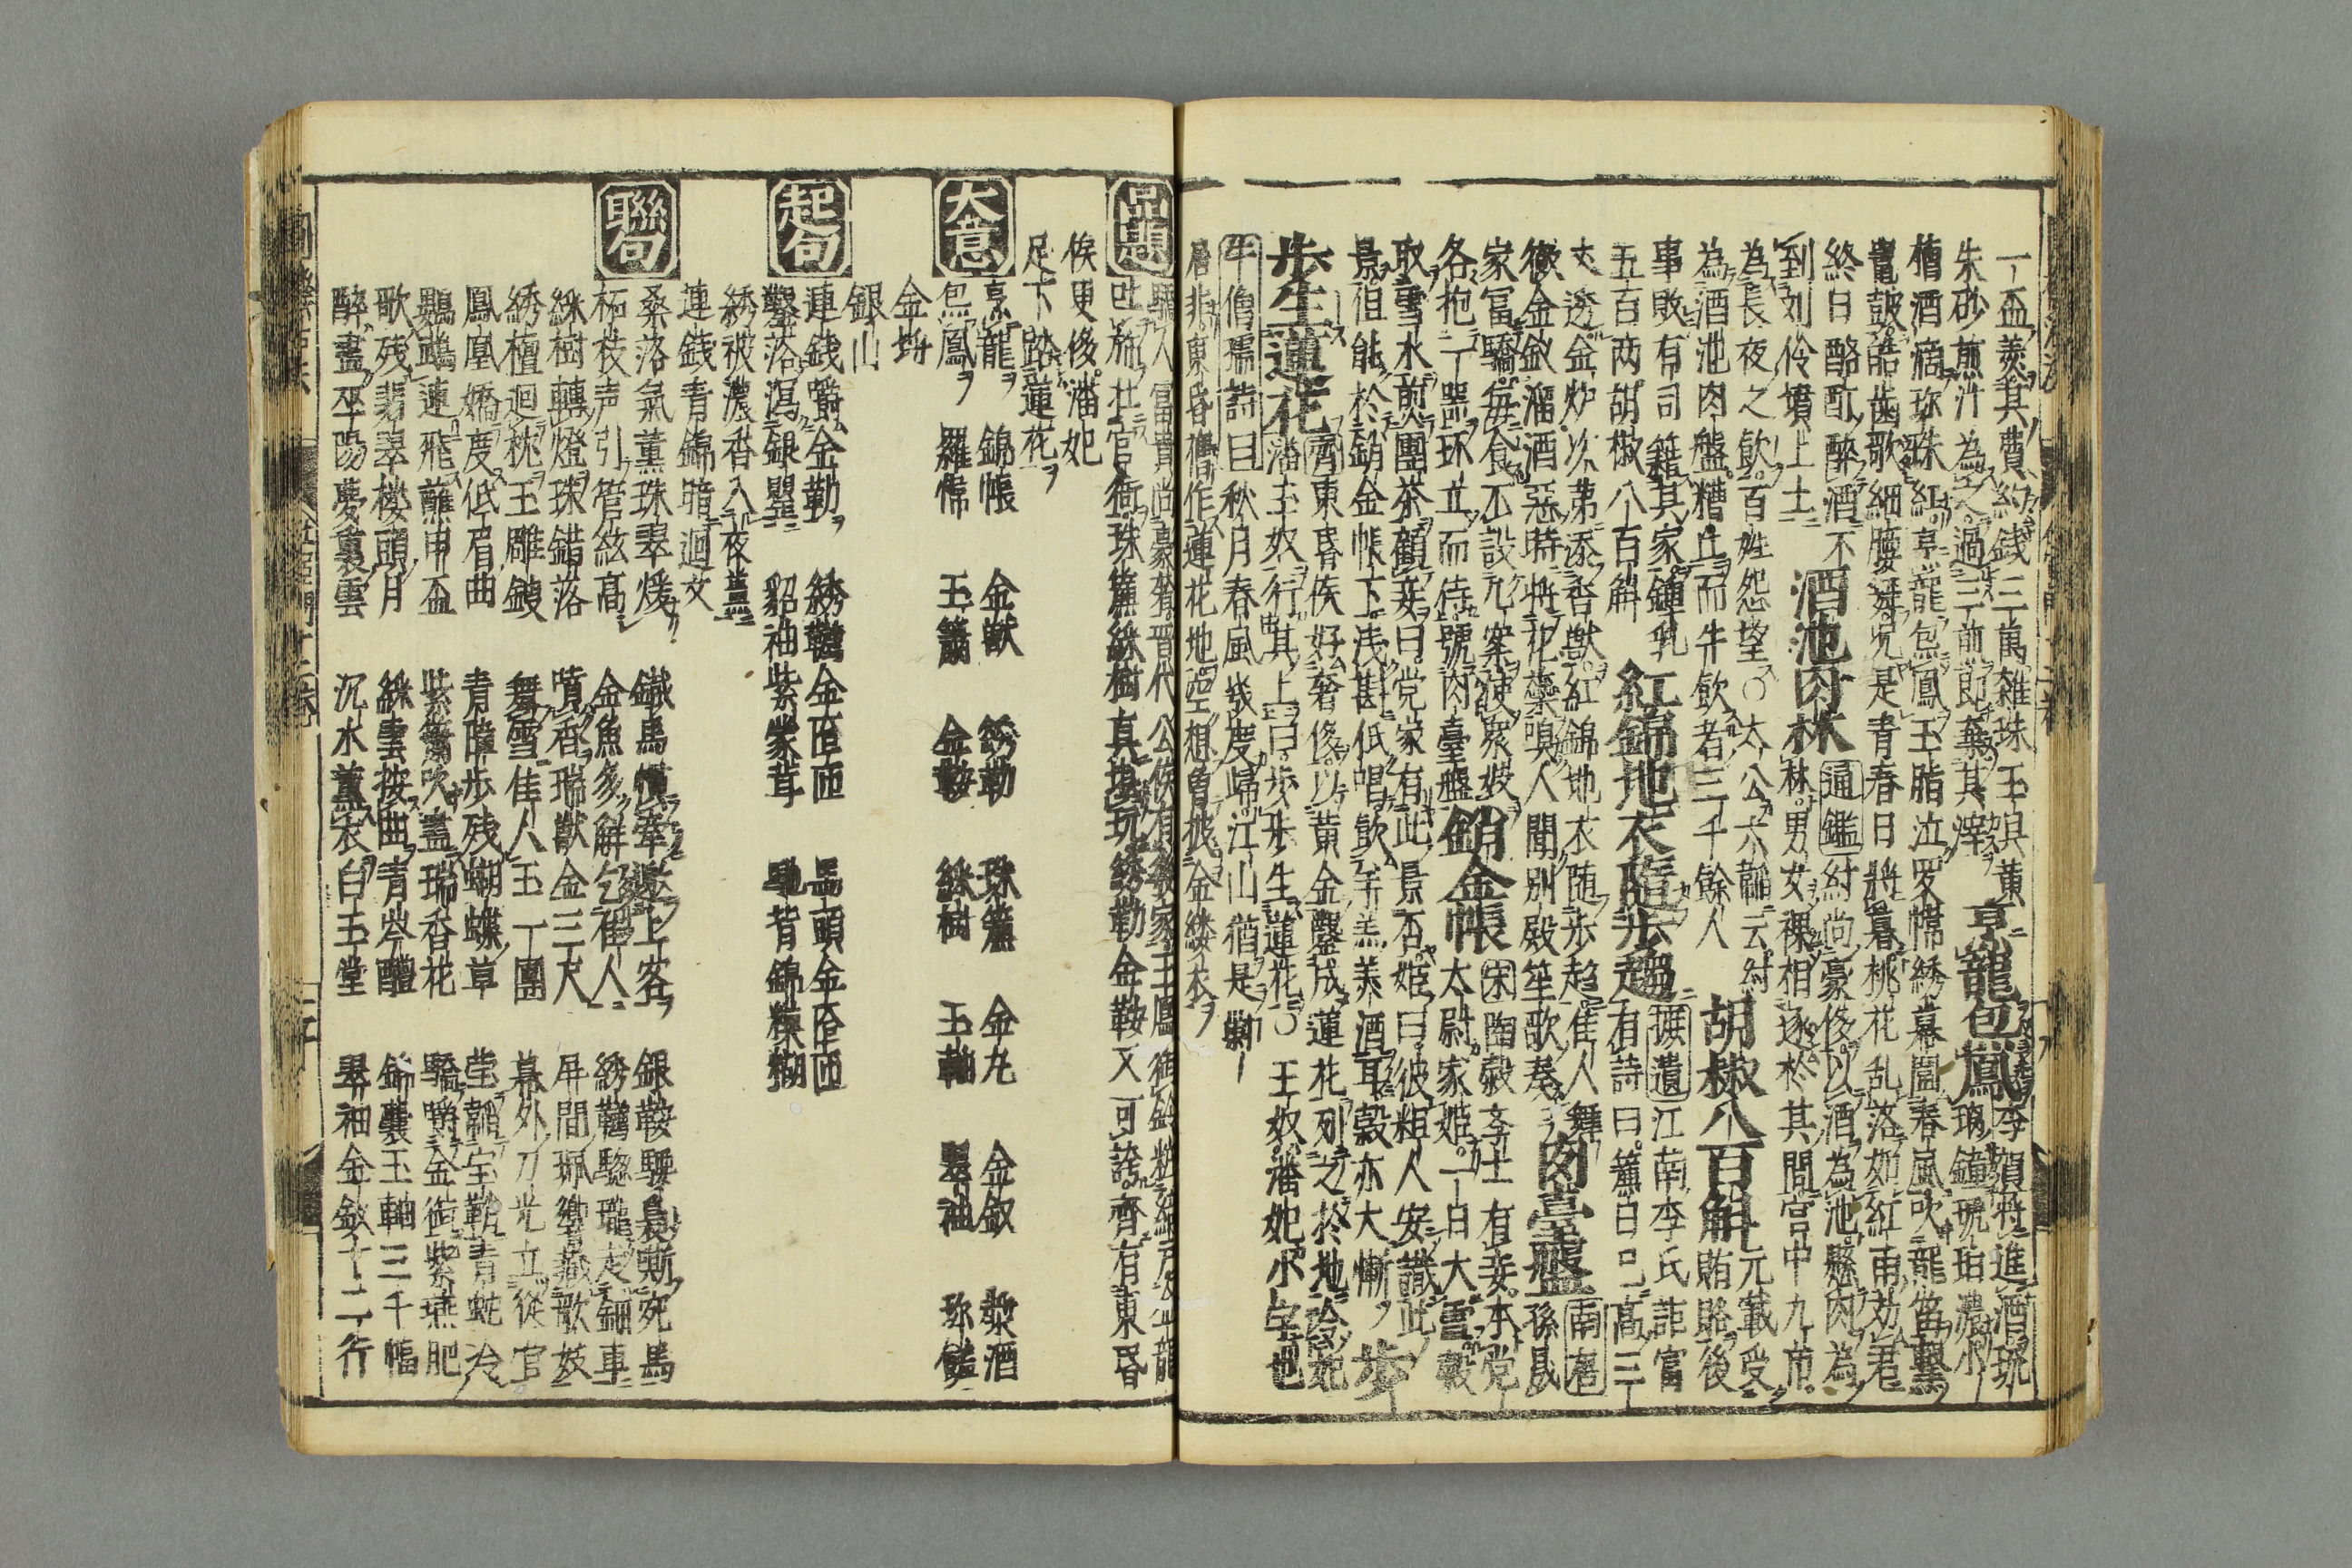 一盃羹其費約錢三萬雜珠玉具黄
朱砂煎汁為之過三煎即棄其滓 烹龍包鳳 李賀將進酒琉
璃鍾琥珀濃小
槽酒滴珎珠紅烹龍包鳳玉脂泣罗幃綉幕圍春風吹龍笛擊
鼉皷皓齒歌細腰舞况是青春日將暮桃花乱落如紅雨劝君
終日酩酊醉酒不
到刘伶墳上土 酒池肉林 通鑑紂尚豪侈以酒為池懸肉為
林男女裸相逐於其間宮中九市
為長夜之飲百姓怨望〇太公六韜云紂
為酒池肉盤糟丘而牛飲者三千餘人 胡椒八百斛 元載受
賄賂後
事敗有司籍其家鍾乳
五百两胡椒八百斛 紅錦地衣隨步趨 摭遺江南李氏詎富
有詩曰簾日已高三
丈透金炉次第添香獸紅錦地衣随步趋佳人舞
徹金釵溜酒惡時將花蘂嗅人聞別殿笙歌奏 肉臺盤 南唐
孫晟
家富驕每食不設几案使衆妓
各抱一器环立而侍號肉臺盤 銷金帳 宋陶糓斈士有妾本党
太尉家姬一日大雪糓
取雪水煎團茶顧妾曰党家有此景否姬曰彼粗人安識此
景但能於銷金帳下浅甚低唱飲羊羔美酒耳糓亦大慚 步
步生蓮花 齊東昏侯好奢侈以黄金鑿成蓮花列之於地令妃
潘玉奴行其上曰步步生蓮花〇王奴潘妃小字也
牛僧孺詩曰秋月春風幾度歸江山猶是
唐非東昏舊作蓮花地空想曾披金缕衣
品題 驕人富貴尚豪奢晋代公侯有幾家
吐施壮官衙珠簾綵樹真堪玩綉勒金鞍又可誇齊有東昏
侯更侈潘妃
足下踏蓮花
大意 烹龍 錦帳 金獣 綉勒 珠簾 金丸 金釵 漿酒
包鳳 羅幃 玉簫 金鞍 綵樹 玉軸 翠袖 珎饈
金埒
銀山
起句 連錢嚼金勒 綉韉金匼匝 馬頭金匼匝
鑿落瀉銀甖 貂袖紫蒙茸 駞背錦糢糊
綉被濃香入夜薰
連錢青錦暗迴文
聯句 桑落氣薫珠翠煖 鐵馬慣牽邀上客 銀鞍騕褭嘶宛馬
柘枝声引管絃高 金魚多解乞佳人 綉韉驄瓏走鈿車
綵樹轉燈珠錯落 噴香瑞獣金三尺 屏間環繞藏歌妓
綉檀迴枕玉雕鎪 舞雪佳人玉一團 幕外刀光立從官
鳳凰嬌度低眉曲 青陰步残蝴蝶草 瑩韜宝鞘青蛇冷
鸚鵡連飛蘸甲盃 紫簫吹盡瑞香花 驕嚼金銜紫燕肥
歌残翡翠楼頭月 綵雲按曲青岑醴 錦囊玉軸三千幅
醉盡巫陽夢裏雲 沉水薰衣白玉堂 翠袖金釵十二行